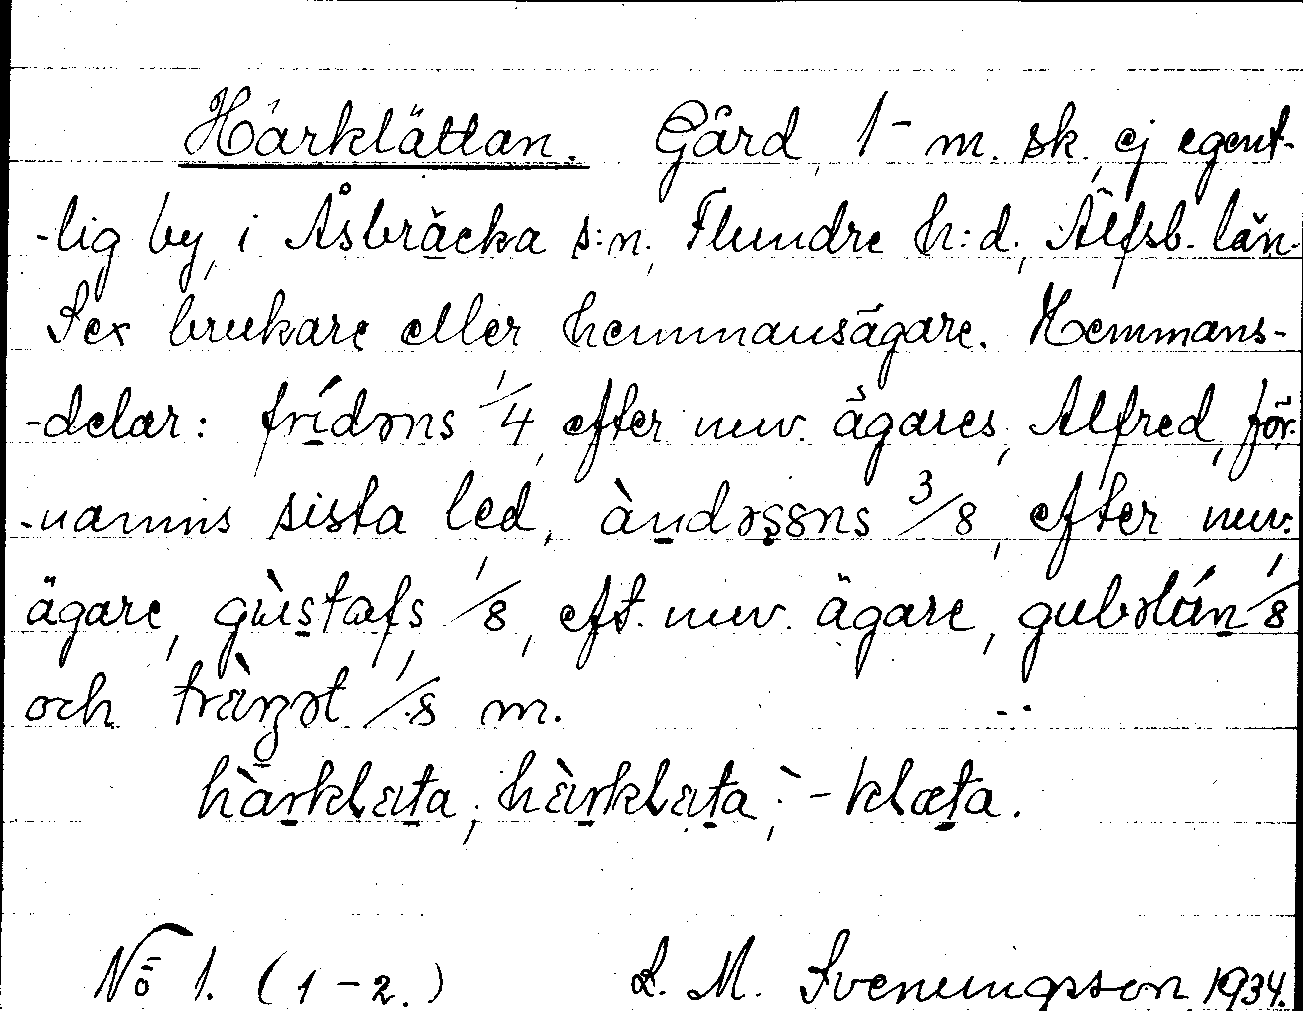 Härklättan. Gård, 1- m. sk., ej egent-
-lig by, i Åsbräcka s:n, Flundre h:d., Älfsb. län.
Sex brukare eller hemmansägare. Hemmans-
-delar: frídəns 1/4, efter nuv. ägares, Alfred, för-
-namns sista led, àndəsəns 3/8, efter nuv.
ägare, gùstafs 1/8, eft. nuv. ägare, gubəlán 1/8
och träŋət 1/8 m.
hàrklæta, hærklæta; -klæta.
No 1. (1-2.) L. M. Svenungsson 1934.